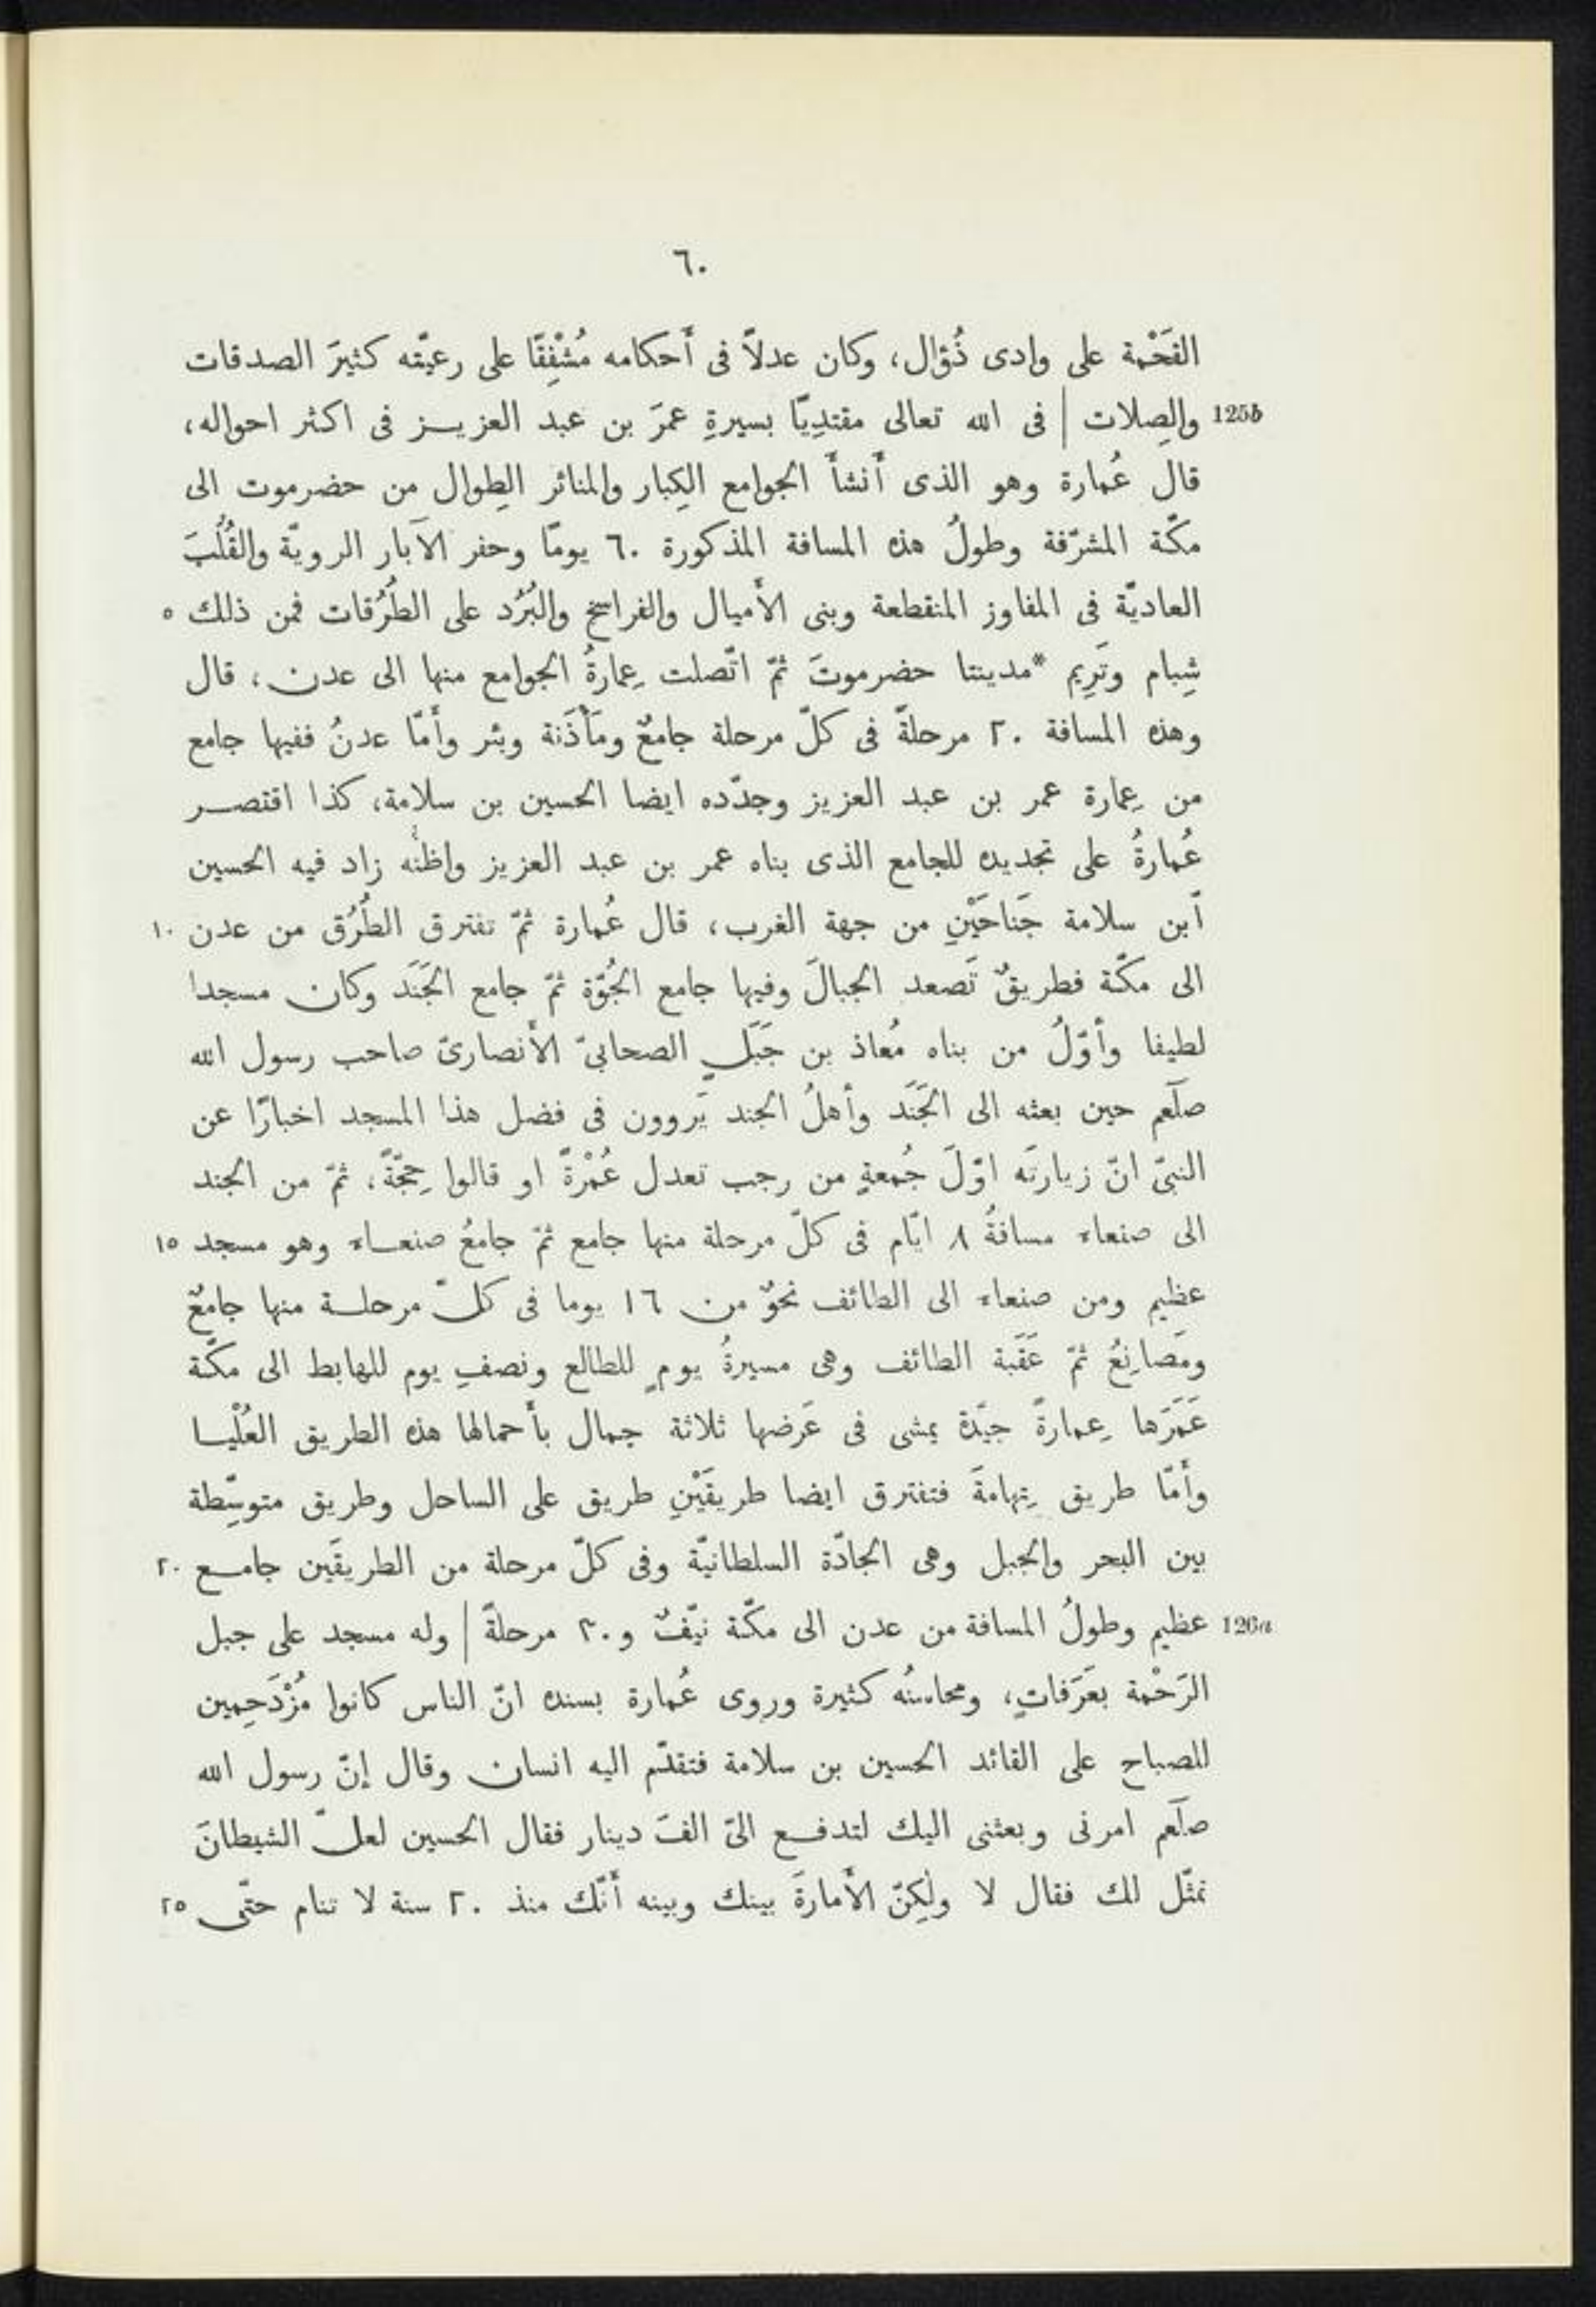 ٦٠
الفَحْمة على وادى ذُؤال، وكان عدلاً فى أَحكامه مُشْفِقًا على رعيّته كثيرَ الصدقات
125b والصِلات | فى الله تعالى مقتدِيًا بسيرةِ عمرَ بن عبد العزيــز فى اكثر احواله،
قال عُمارة وهو الذى أَنشأَ الجوامع الكِبار والمنائر الطِوال من حضرموت الى
مكّة المشرّفة وطولُ هذه المسافة المذكورة ٦٠ يومًا وحفر الآبار الرويّة والقُلُبَ
العاديّة فى المفاوز المنقطعة وبنى الأَميال والفراسخ والبُرُد على الطُرُقات فمن ذلك ٥
شِبام وتَرِيم *مدينتا حضرموتَ ثمّ اتّصلت عِمارةُ الجوامع منها الى عدن، قال
وهذه المسافة ٢٠ مرحلةً فى كلّ مرحلة جامعٌ ومَأْذَنة وبئر وأَمّا عدنُ ففيها جامع
من عِمارة عمر بن عبد العزيز وجدّده ايضا الحسين بن سلامة، كذا اقتصــر
عُمارةُ على تجديده للجامع الذى بناه عمر بن عبد العزيز واظنّه زاد فيه الحسين
آبن سلامة جَناحَيْنِ من جهة الغرب، قال عُمارة ثمّ تفترق الطُرُق من عدن ١٠
الى مكّة فطريقٌ تَصعد الجبالَ وفيها جامع الجُوّة ثمّ جامع الجَنَد وكان مسجدا
لطيفا وأوّلُ من بناه مُعاذ بن جَبَلٍ الصحابىّ الأَنصارىّ صاحب رسول الله
صلّعم حين بعثه الى الجَنَد وأهلُ الجند يَروون فى فضل هذا المسجد اخبارًا عن
النبىّ انّ زيارتَه اوّلَ جُمعةٍ من رجب تعدل عُمْرةً او قالوا حِجّةً، ثمّ من الجند
الى صنعاء مسافةُ ٨ ايّام فى كلّ مرحلة منها جامع ثمّ جامعُ صنعــاء وهو مسجد ١٥
عظيم ومن صنعاء الى الطائف نحوٌ من ١٦ يوما فى كلّ مرحلــة منها جامعٌ
ومَصانِعُ ثمّ عَقَبة الطائف وهى مسيرةُ يومٍ للطالع ونصفِ يوم للهابط الى مكّة
عَمَرَها عِمارةً جيّدة يمشى فى عَرضها ثلاثة جمال بأَحمالها هذه الطريق العُلْيــا
وأَمّا طريق تِهامةَ فتفترق ايضا طريقَيْنِ طريق على الساحل وطريق متوسِّطة
بين البحر والجبل وهى الجادّة السلطانيّة وفى كلّ مرحلة من الطريقَين جامــع ٢٠
126a عظيم وطولُ المسافة من عدن الى مكّة نيّفٌ و٣٠ مرحلةً | وله مسجد على جبل
الرَحْمة بعَرَفاتٍ، ومحاسنُه كثيرة وروى عُمارة بسنده انّ الناس كانوا مُزْدَحِمين
للصباح على القائد الحسين بن سلامة فتقدّم اليه انسان وقال إنّ رسول الله
صلّعم امرنى وبعثنى اليك لتدفــع الىّ الفَ دينار فقال الحسين لعلّ الشيطانَ
تمثّل لك فقال لا ولٰكِنّ الأَمارةَ بينك وبينه أَنّك منذ ٢٠ سنة لا تنام حتّى ٢٥